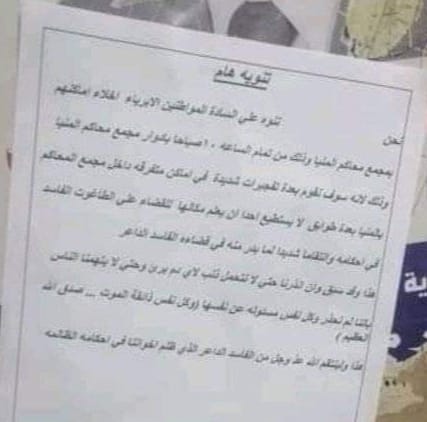 تنويه هام
ننوه علي السادة المواطنين الابرياء اخلاء اماكنهم
نحن
بمجمع محاكم المنيا وذلك من تمام الساعه ١٠ صباحا بكدوار مجمع محاكم المنيا
وذلك لانه سوف نقوم بعدة تفجيرات شديدة في اماكن متفرقه داخل مجمع المحاكم
بالمنيا بعدة طوابق لا يستطيع احدا ان يعلم مكانها للقضاء على الطاغوت الفاسد
في احكامه وانتقاما شديدا لما بدر منه في قضاءه الفاسد الداعر
هذا وقد سبق وان انذرنا حتي لا نتحمل ذنب لاي دم برئ وحتي لا يتهمنا الناس
باننا لم نحذر وكل نفس مسئوله عن نفسها (وكل نفس ذائقة الموت ... صدق الله
العظيم )
هذا ولينتقم الله عذ وجل من الفاسد الداعر الذي ظلم اخواتنا في احكامه الظالمه
ية